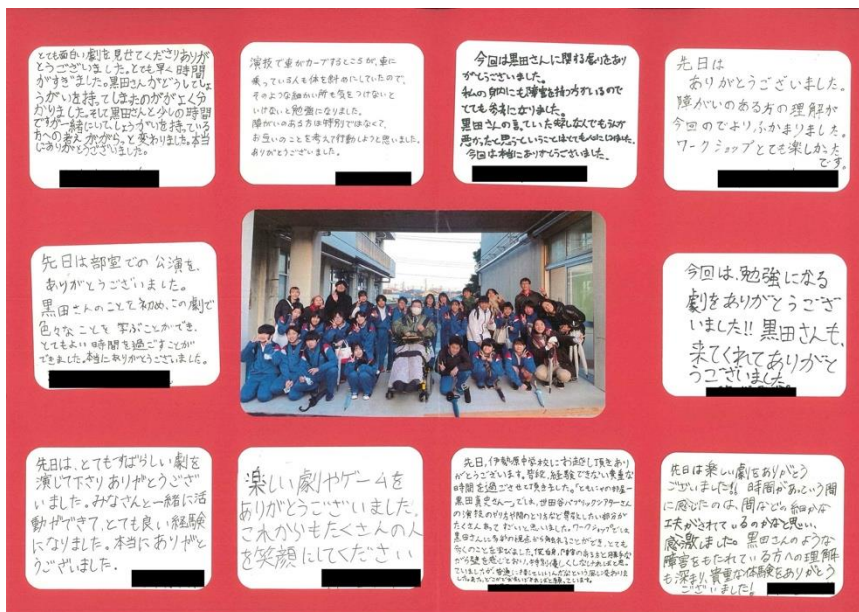 とても面白い劇を見せてくださりありが
とうございました。とても早く時間
がすぎました。黒田さんがどうしてしょ
うがいを持ってしまったのかがよく分
かりました。そして黒田さんと少しの時間
ですが一緒にいて、しょうがいを持っている
方への考えががらっと変わりました。本当
にありがとうございました。
演技で車がカーブするところが、車に
乗っている人も体を斜めにしていたので、
そのような細かい所も気をつけないと
いけないと勉強になりました。
障がいのある方は特別ではなくて、
お互いのことを考えて行動しようと思いました。
ありがとうございました。
今回は黒田さんに関する劇をあり
がとうございました。
私の身内にも障害を持つ方がいるので
とても参考になりました。
黒田さんの言っていた
今回は本当にありがとうございました。
先日は
ありがとうございました。
障がいのある方の理解が
今回のでよりふかまりました。
ワークショップとても楽しかった
です。
先日は部室での公演を、
ありがとうございました。
黒田さんのことを初め、この劇で
色々なことを学ぶことができ、
とてもよい時間を過ごすことが
できました。本当にありがとうございました。
今回は、勉強になる
劇をありがとうござ
いました!! 黒田さんも、
来てくれてありがと
うございました
先日は、とてもすばらしい劇を
演じて下さりありがとうござ
いました。みなさんと一緒に活
動ができて、とても良い経験
になりました。本当にありがと
うございました。
楽しい劇やゲームを
ありがとうございました。
これからもたくさんの人
を笑顔にしてください
先日、伊勢原中学校にお越し頂きあり
がとうございます。普段、経験できない貴重な
時間を過ごさせて頂きました。
黒田真史さん 世田谷パブリックシアターさん
の演技のやり方や間のとり方など
たくさんあってすごいと思いました。ワークショップでも
黒田さんに
多くのことを学びました。
先日は楽しい劇をありがとう
ございました!! 時間があっという間
に感じたのは、間などの細かな
工夫がされているのかなと思い、
感激しました。黒田さんのような
障害をもたれている方への理解
も深まり、貴重な体験をありがとう
ございました!